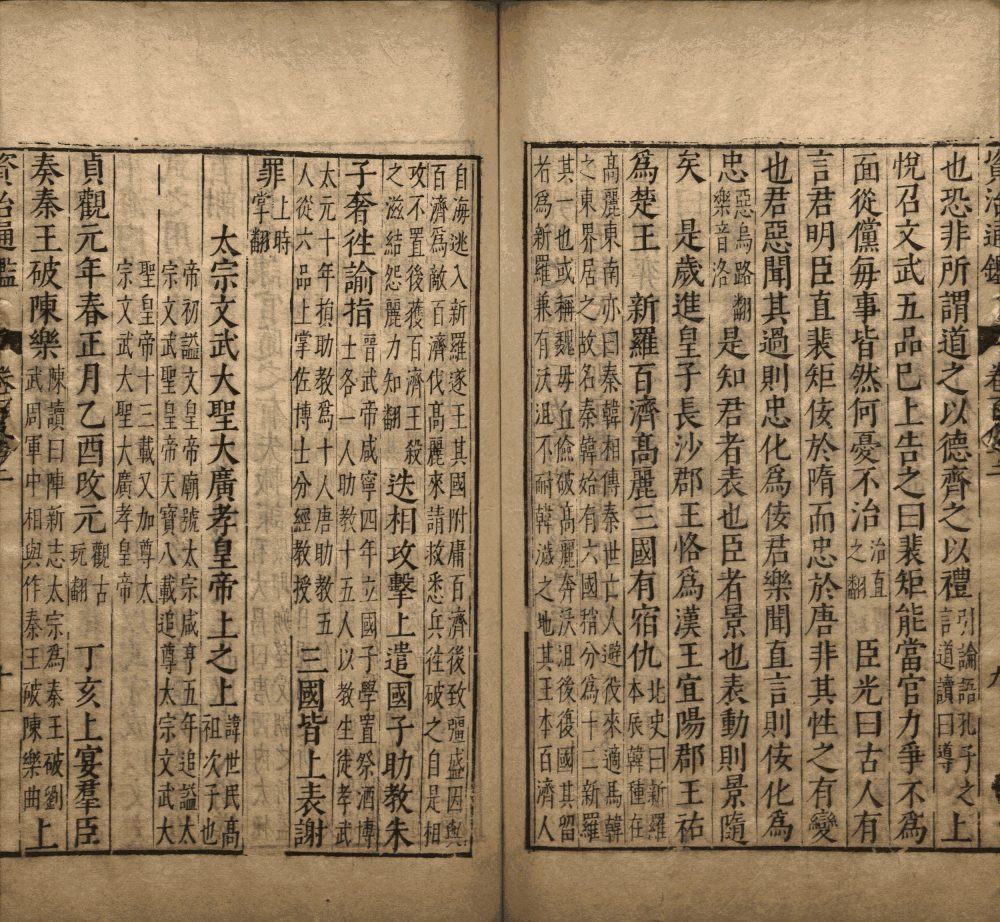 資治通鑑
也恐非所謂道之以德齊之以禮引論語孔子之言道讀曰導上
悅召文武五品巳上告之曰裴矩能當官力爭不爲
面從儻每事皆然何憂不治治直之翻 臣光曰古人有
言君明臣直裴矩佞於隋而忠於唐非其性之有變
也君惡聞其過則忠化爲佞君樂聞直言則佞化爲
忠惡烏路翻樂音洛是知君者表也臣者景也表動則景隨
矣 是歲進皇子長沙郡王恪爲漢王宜陽郡王祐
爲楚王 新羅百濟高麗三國有宿仇北史曰新羅本辰韓種在
高麗東南亦曰秦韓相傳秦世亡人避役來適馬韓
之東界居之故名秦韓始有六國稍分爲十二新羅
其一也或稱魏毋丘儉破高麗奔沃沮後復國其留
者爲新羅兼有沃沮不耐韓濊之地其王本百濟人
自海逃入新羅遂王其國附庸百濟後致彊盛因與
百濟爲敵百濟伐高麗來請救悉兵往破之自是相
攻不置後獲百濟王殺
之滋結怨麗力知翻迭相攻擊上遣國子助教朱
子奢往諭指晉武帝咸寧四年立國子學置祭酒博
士各一人助教十五人以教生徒孝武
太元十年損助教爲十人唐助教五
人從六品上掌佐博士分經教授三國皆上表謝
罪上時掌翻
太宗文武大聖大廣孝皇帝上之上諱世民高祖次子也
帝初謚文皇帝廟號太宗咸亨五年追謚太
宗文武聖皇帝天寶八載追尊太宗文武大
聖皇帝十三載又加尊太
宗文武大聖大廣孝皇帝
貞觀元年春正月乙酉改元觀古玩翻 丁亥上宴羣臣
奏秦王破陳樂陳讀曰陣新志太宗爲秦王破劉武周軍中相與作秦王破陳樂曲上
資治通鑑
十一